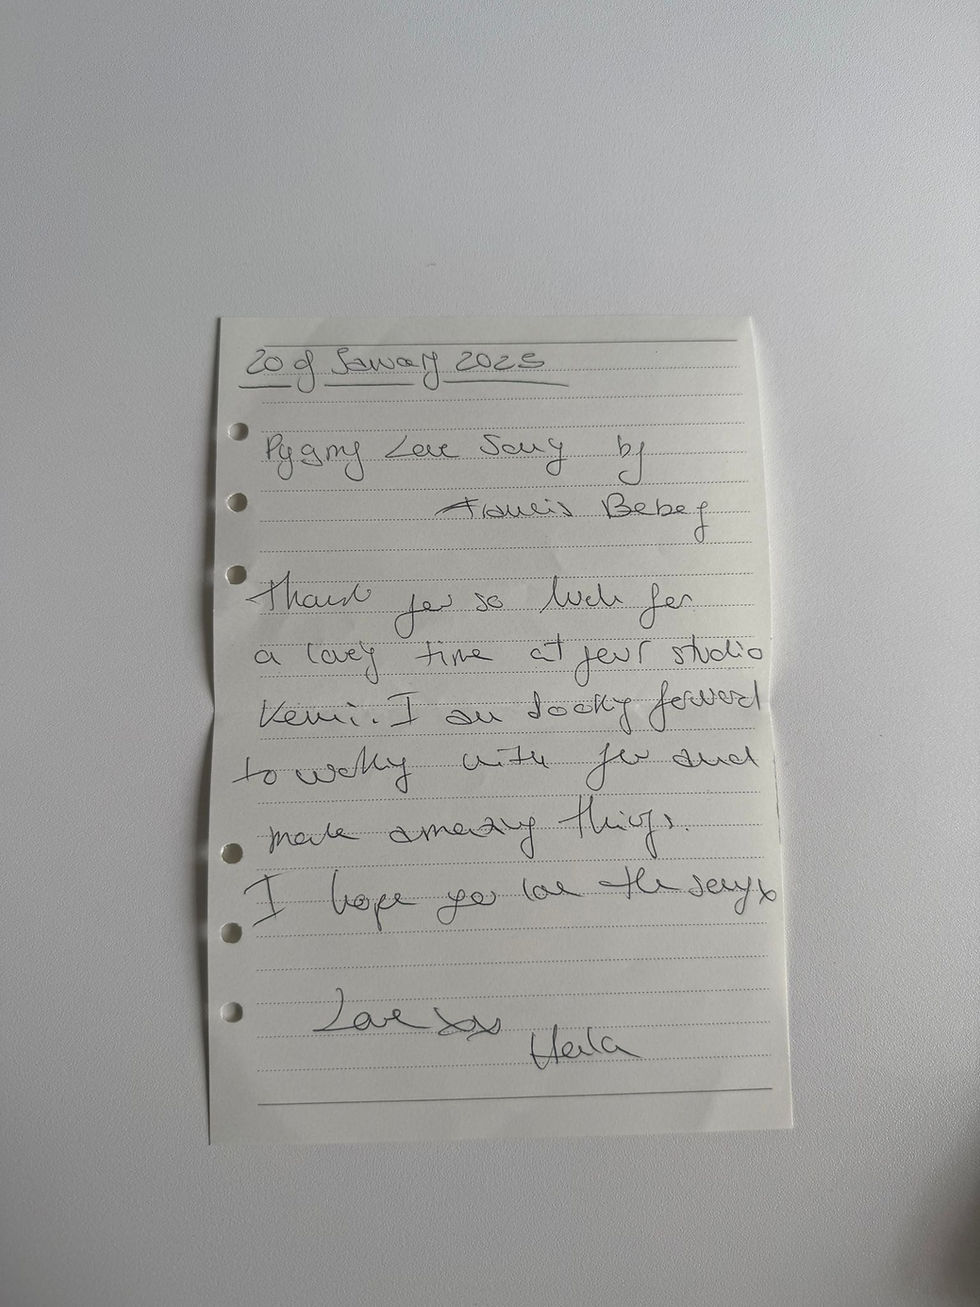 20 of January 2025
Pygmy Love Song by
Francis Bebey
Thank you so much for
a lovely time at your studio
Kemi. I am looking forward
to working with you and
make amazing things.
I hope you love the song x
Love xxx